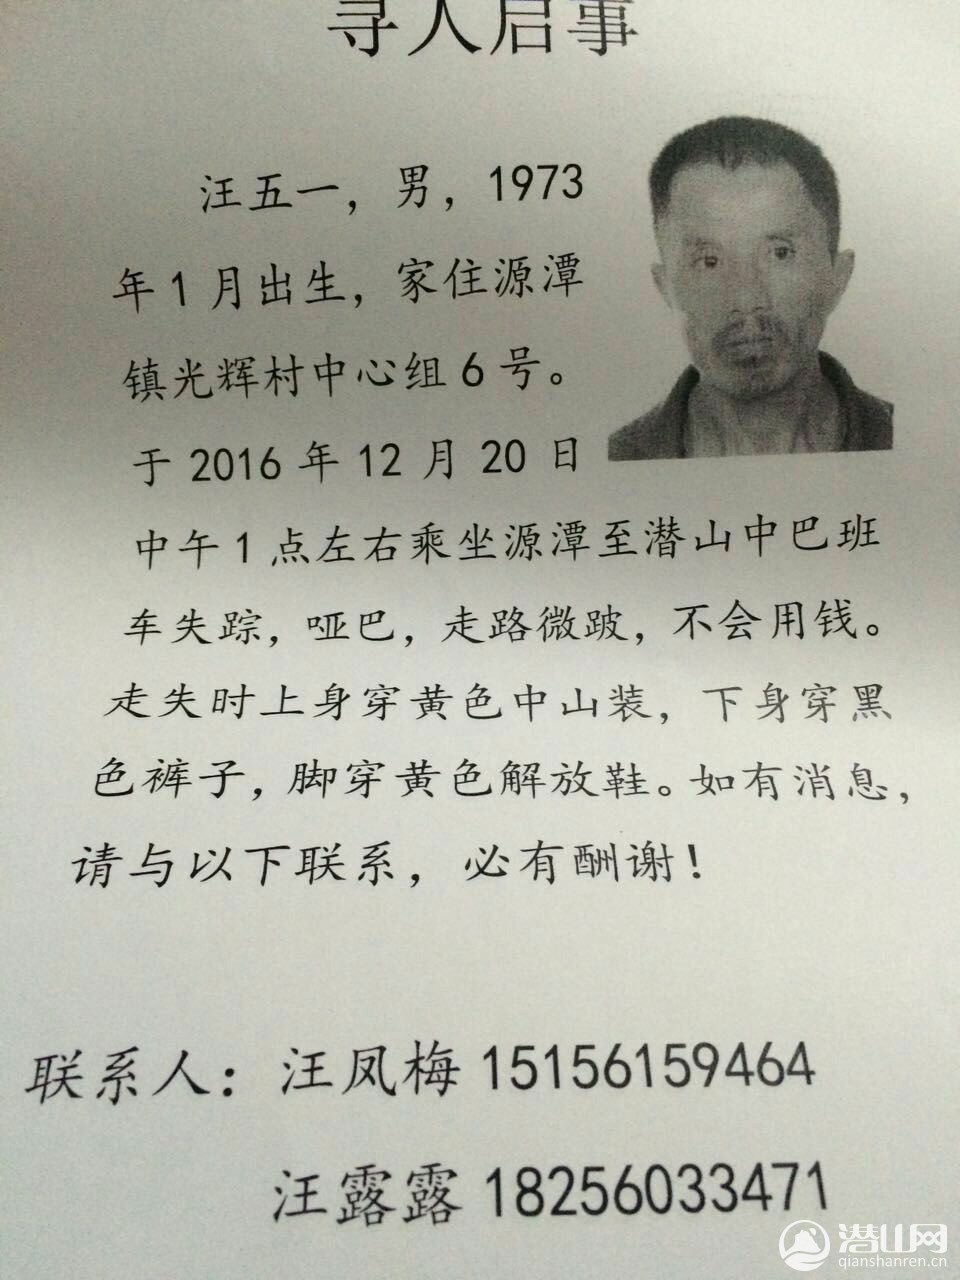 寻人启事
汪五一，男，1973
年1月出生，家住源潭
镇光辉村中心组6号。
于2016年12月20日
中午1点左右乘坐源潭至潜山中巴班
车失踪，哑巴，走路微跛，不会用钱。
走失时上身穿黄色中山装，下身穿黑
色裤子，脚穿黄色解放鞋。如有消息，
请与以下联系，必有酬谢！
联系人：汪凤梅 15156159464
汪露露 18256033471
潜山网
qianshanren.cn